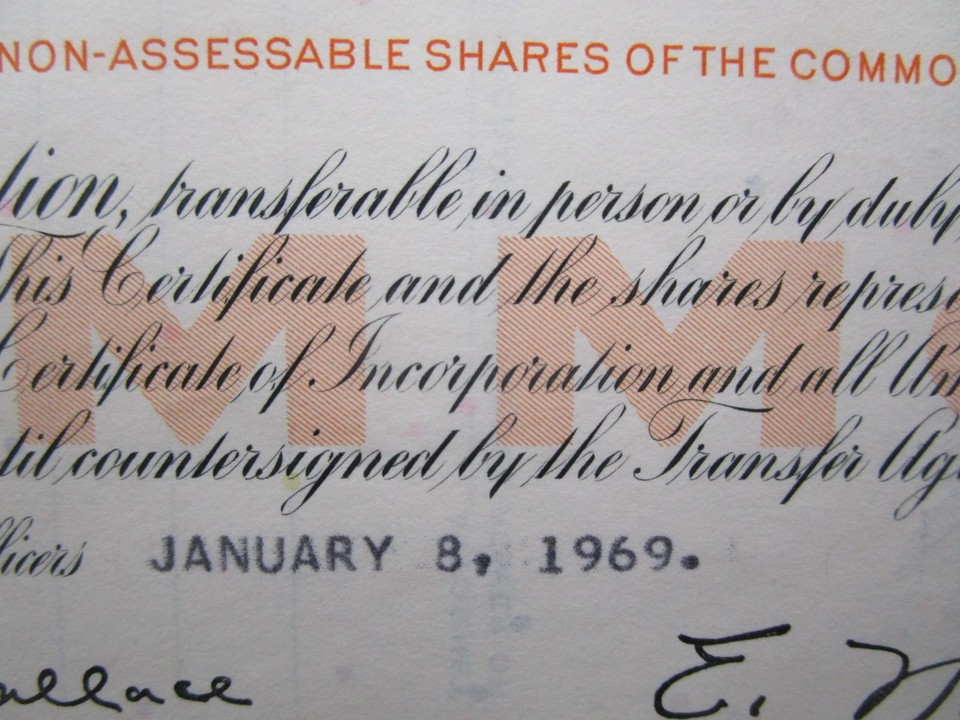 NON-ASSESSABLE SHARES OF THE COMMO
tion, transferable in person or by duly
MM
this Certificate and the shares represe
Certificate of Incorporation and all Am
til countersigned by the Transfer Ag
fficers JANUARY 8, 1969.
allace E.